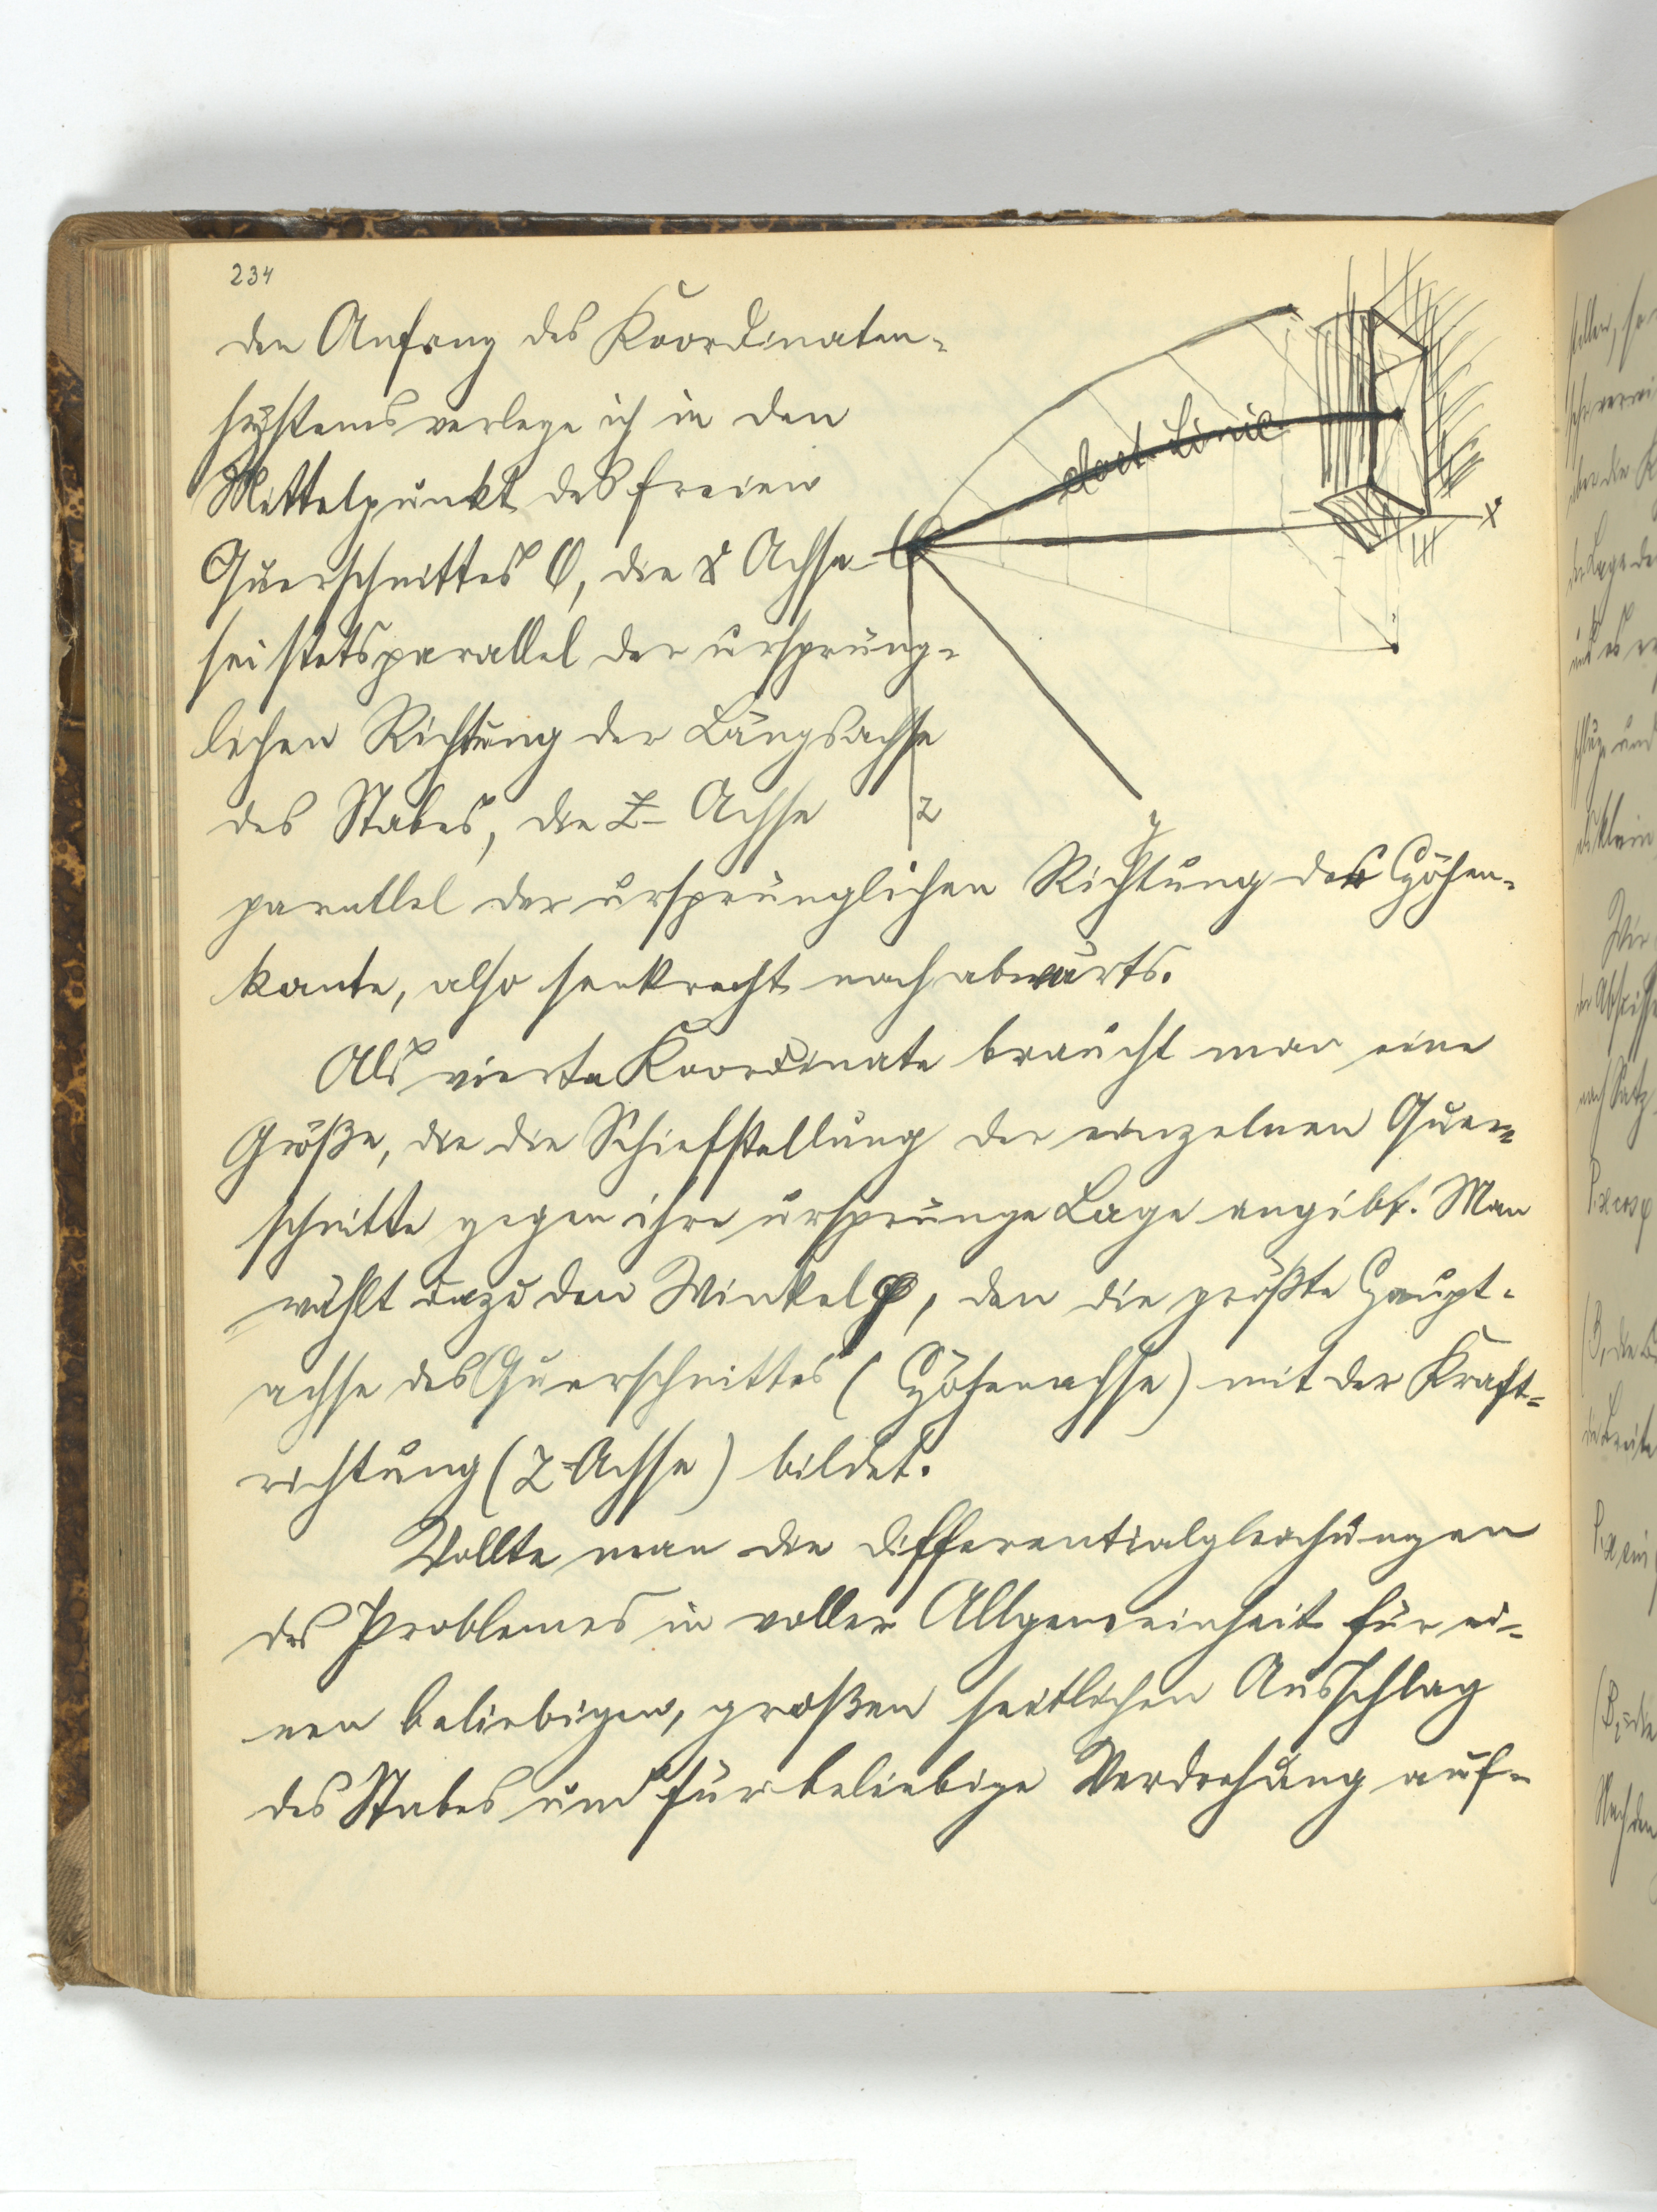 234
den Anfang des Koordinaten-
systems verlege ich in den
Mittelpunkt des freien
Querschnittes O, die X Achse
sei stets parallel der ursprüng-
lichen Richtung der Längsachse
des Stabes, die Z- Achse
parallel der ursprünglichen Richtung der Höhen-
kante, also senkrecht nach abwärts.
Als vierte Koordinate braucht man eine
Größe, die die Schiefstellung der einzelnen Quer-
schnitte gegen ihre ursprunge Lage angibt. Man
wählt dazu den Winkel φ, den die größte Haupt-
achse des Querschnittes (Höhenachse) mit der Kraft-
richtung (Z-Achse) bildet.
Wollte man die Differentialgleichungen
des Problemes in voller Allgemeinheit für ei-
nen beliebigen, großen seitlichen Ausschlag
des Stabes und für beliebige Verdrehung auf-
elast. Linie
X
y
z